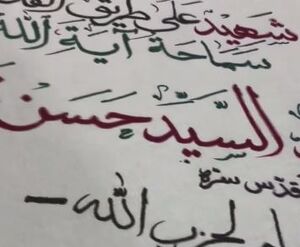 شهيد على طريق
سماحة آية الله
السيد حسن
قدس سره
لحزب الله –